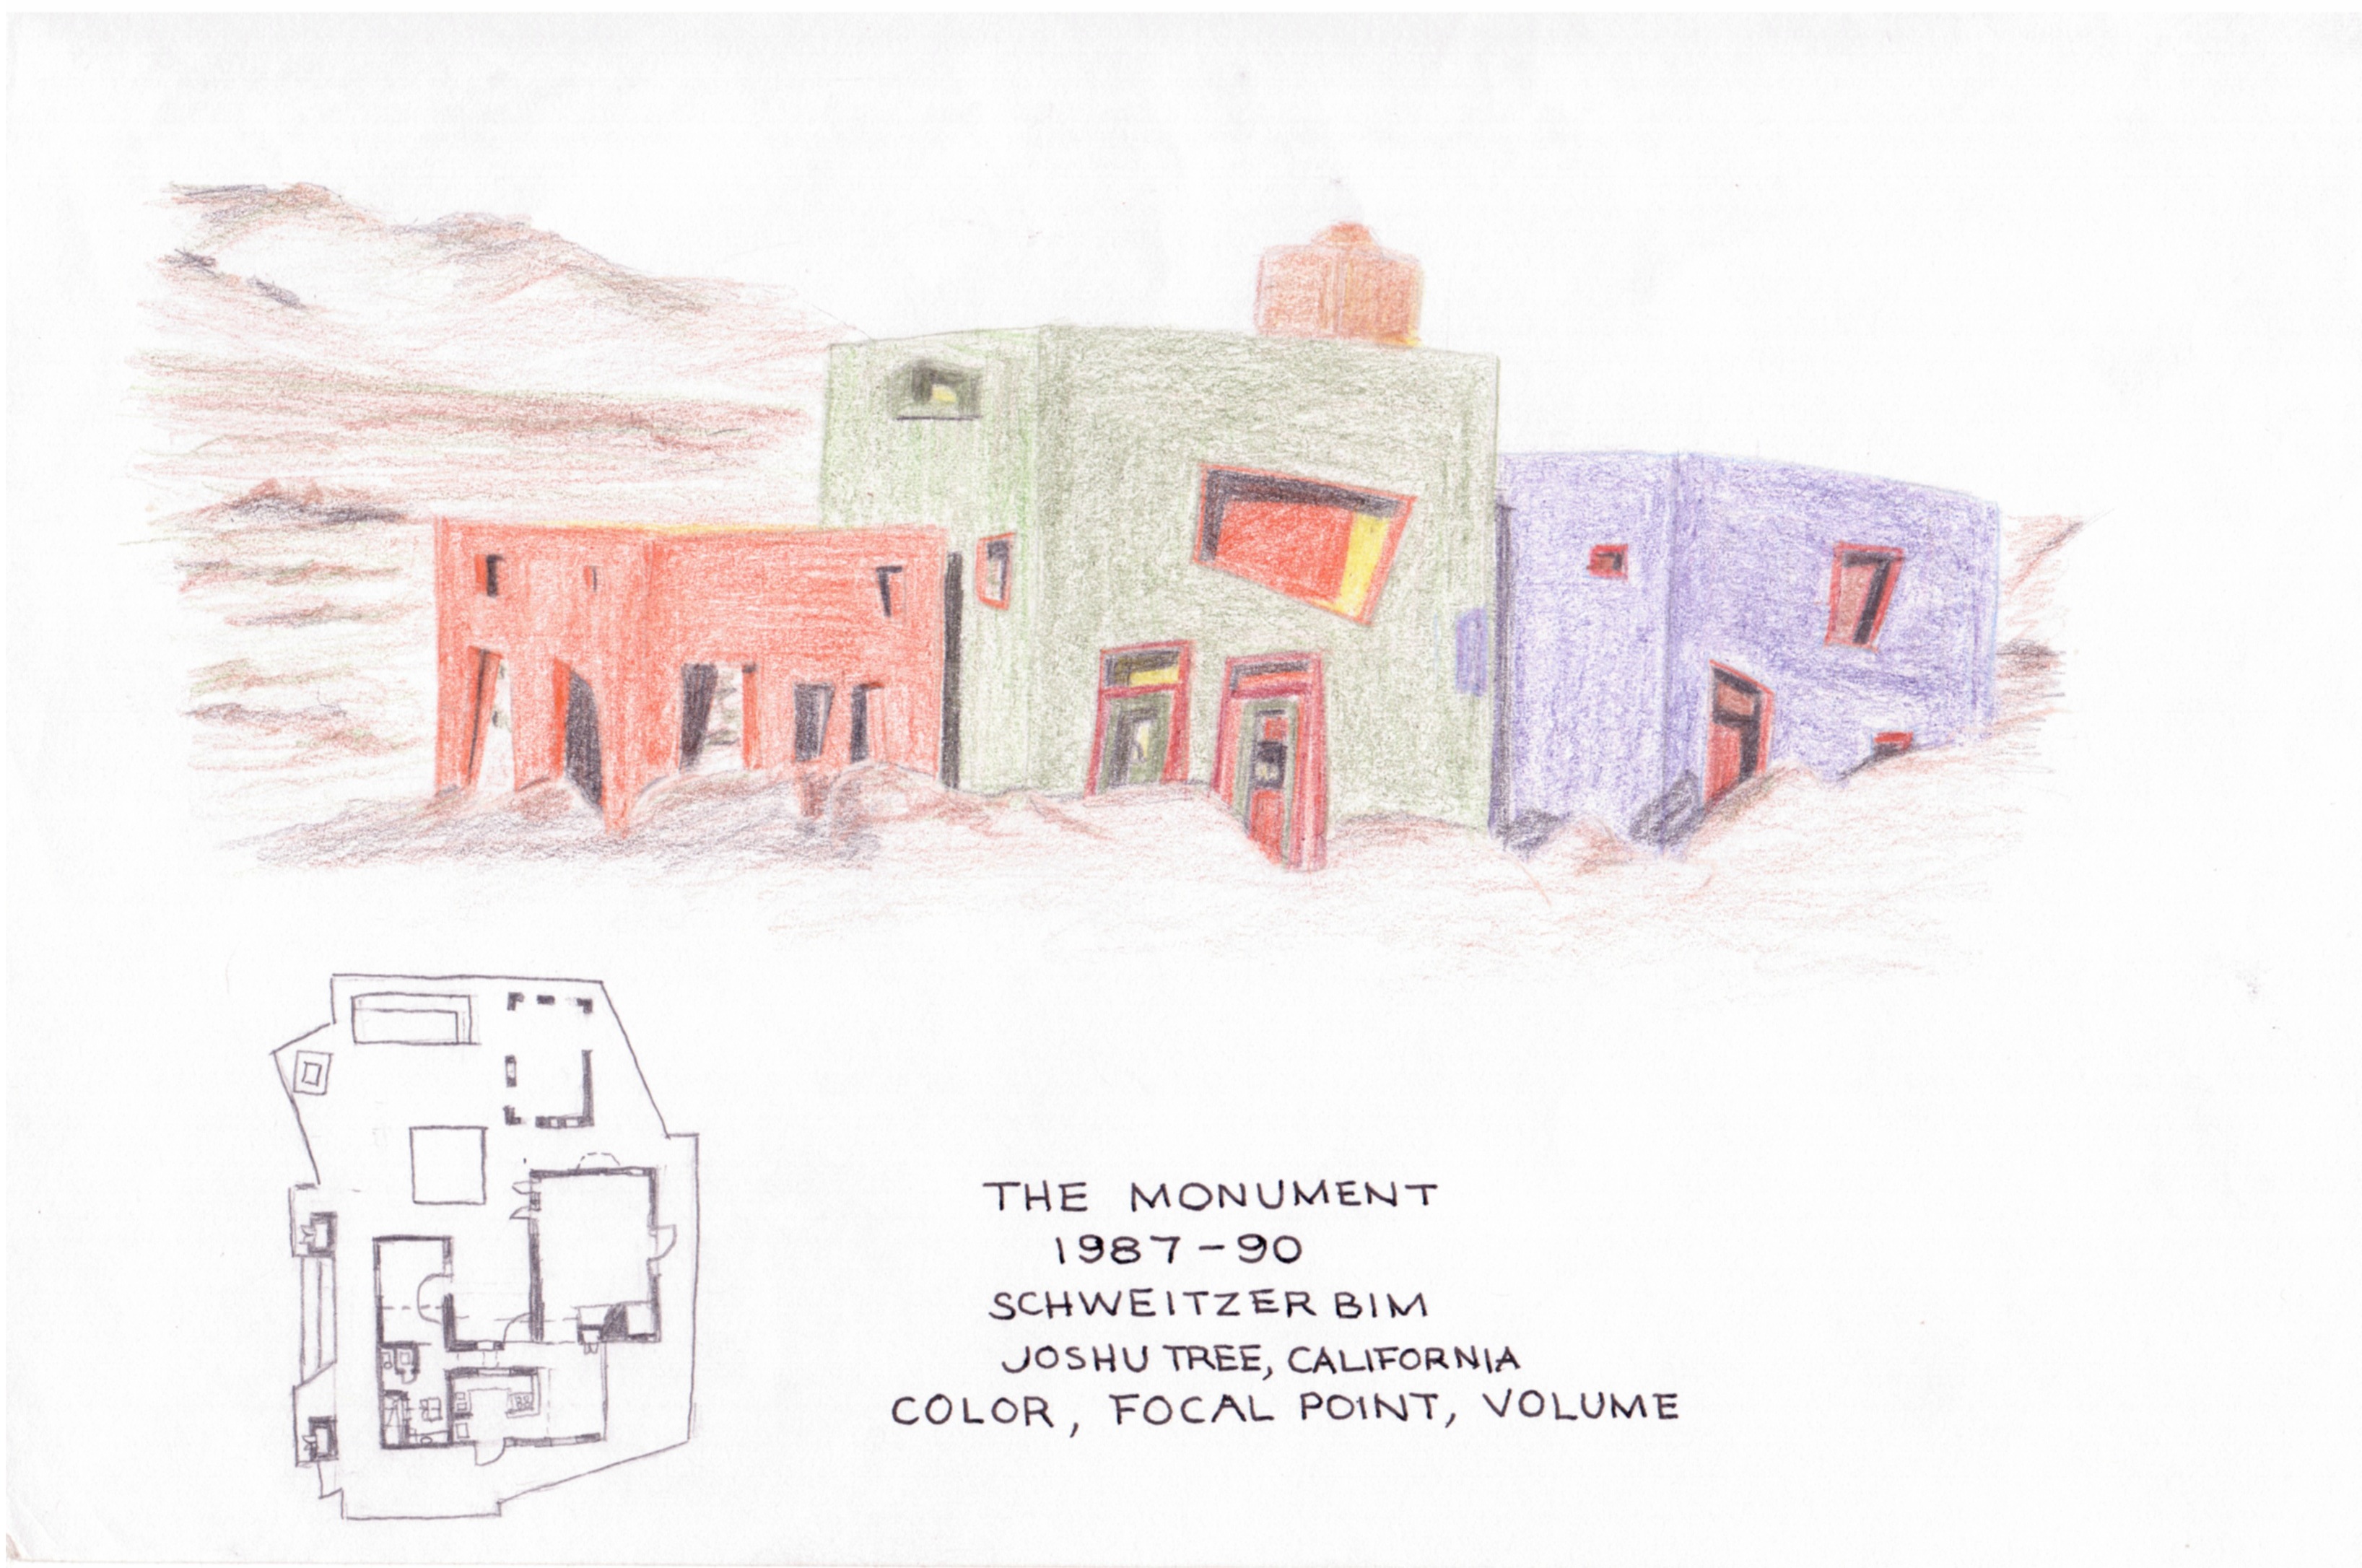 THE MONUMENT
1987-90
SCHWEITZER BIM
JOSHU TREE, CALIFORNIA
COLOR, FOCAL POINT, VOLUME